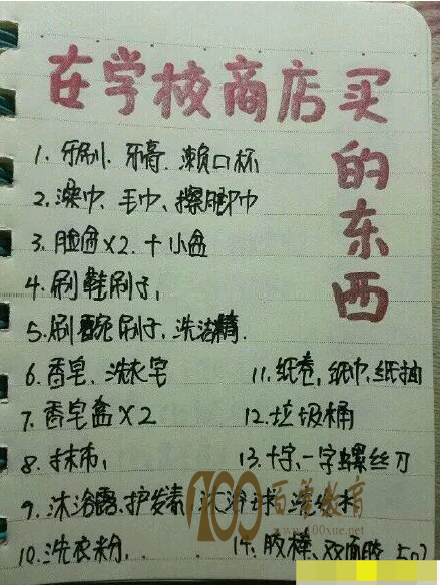 在学校商店买
的东西
1. 牙刷、牙膏、漱口杯
2. 澡巾、毛巾、擦脚巾
3. 脸盆×2. 十小盆
4. 刷鞋刷子,
5. 刷碗刷子、洗洁精.
6. 香皂、洗衣皂
11. 纸卷, 纸巾, 纸抽
7. 香皂盒×2
12. 垃圾桶
8. 抹布,
13. 十字、一字螺丝刀
9. 沐浴露、护发素、沐浴球、洗发水
100百尊教育
www.100xue.net
10. 洗衣粉,
14. 胶棒、双面胶